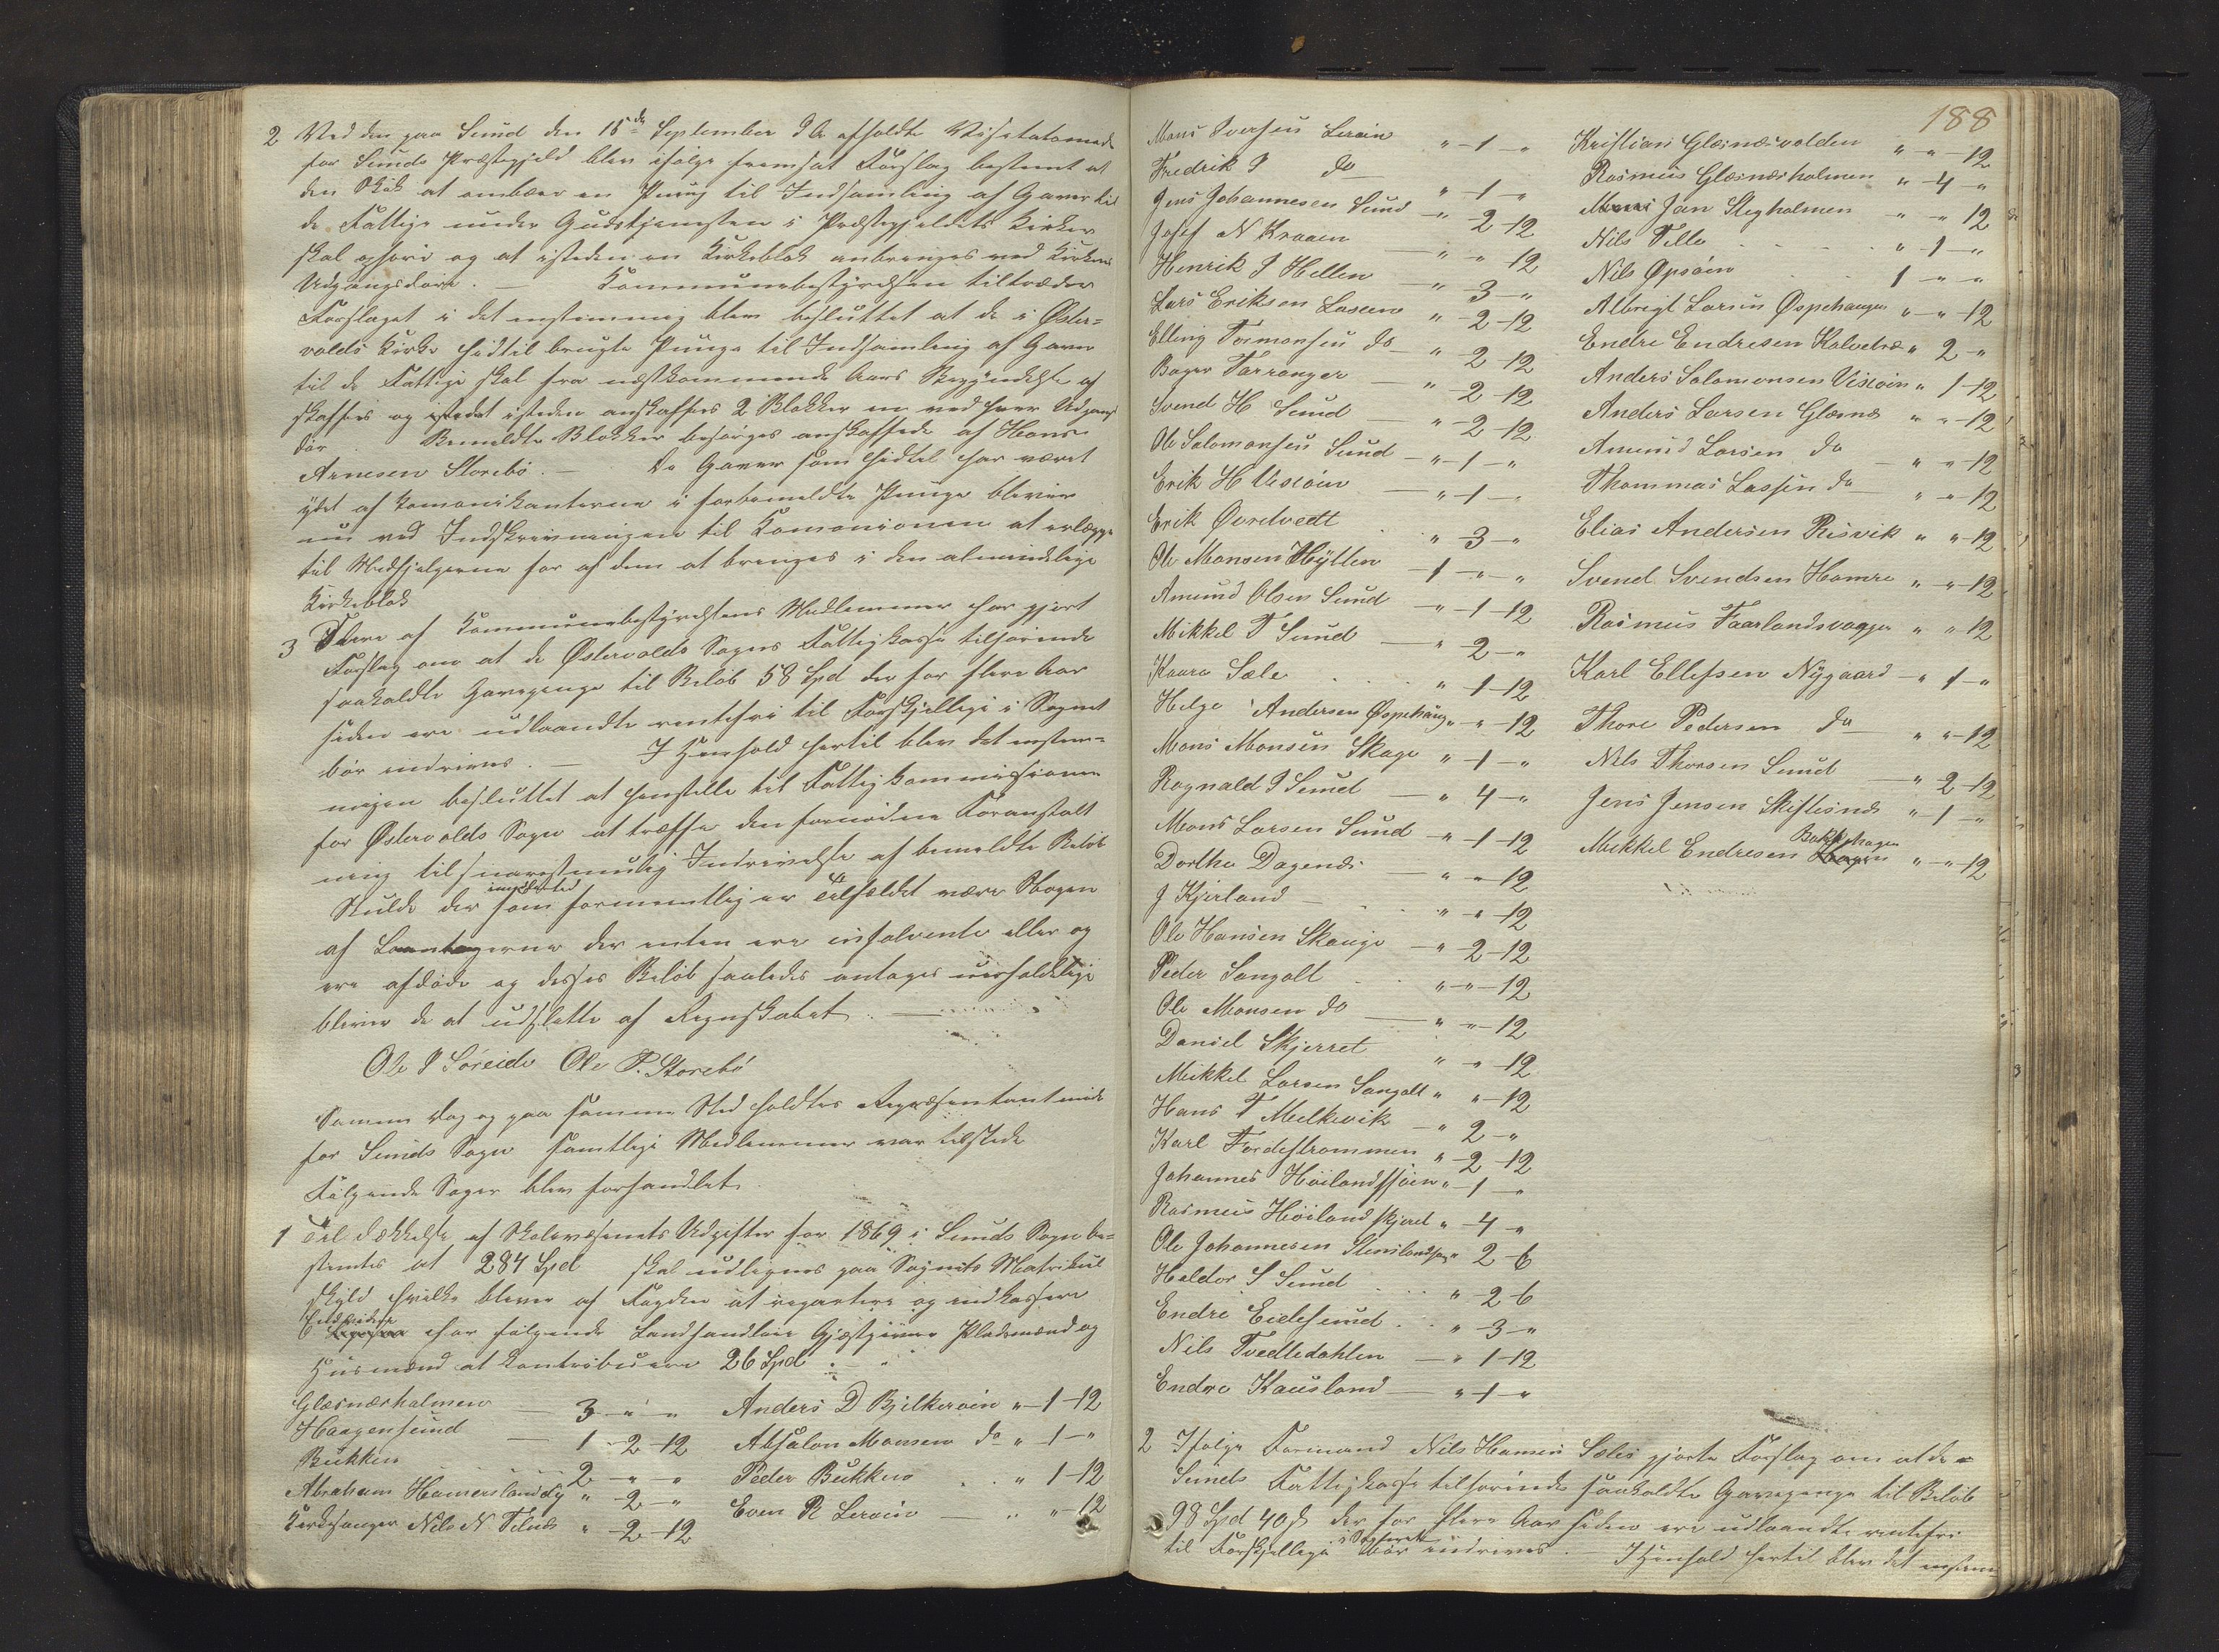 2 Ved den paa Sund den 18de September d A afholdte Visitatsmøde
for Sunds Præstegjeld blev ifølge fremsat Forslag bestemt at
den Skik at ombære en Pung til Indsamling af Gaver til
de Fattige under Gudstjenesten i Præstegjeldets Kirker
skal ophøre og at isteden en Kirkeblok anbringes ved Kirkens
Udgangsdøre. — Kommunebestyrelsen tiltræder
Forslaget i det enstemmig blev besluttet at de i Øster=
volds Kirke hidtil brugte Punge til Indsamling af Gaver
til de Fattige skal fra næstkommende Aars Begyndelse af
skaffes og isteden anskaffes 2 Blokker en ved hver Udgangs
dør. Bemeldte Blokker besørges anskaffede af Hans
Arnesen Storebø. — De Gaver som hidtil har været
ydet af Komonikanterne i forbemeldte Punge bliver
nu ved Indskrivningen til Komonionen at erlægge
til Medhjelperne for af dem at bringes i den almindelige
Kirkeblok
3 Flere af Kommunebestyrelsens Medlemmer har gjort
Forslag om at de Østervolds Sogns Fattigkasse tilhørende
saakaldte Gavepenge til Beløb 58 Spd der for flere Aar
siden ere udlaandte rentefri til Forskjellige i Sognet
bør indrives. — I Henhold hertil blev det enstem=
migen besluttet at henstille til Fattigkommissionen
for Østervolds Sogn at træffe den fornødne Foranstalt
ning til snarestmulig Indrivelse af bemeldte Beløb
Skulde der som formentlig er Tilfældet være Nogen
af Laantagerne der enten ere insolvente eller og
ere afdøde og disses Beløb saaledes antages uerholdelige
bliver de at udslette af Regnskabet. —
Ole I Søreide Ole P. Storebø
Samme Dag og paa samme Sted holdtes Repræsentantmøde
for Sunds Sogn samtlige Medlemmer var tilstede
Følgende Sager blev forhandlet.
1 Til Dækkelse af Skolevæsenets Udgifter for 1869 i Sunds Sogn be=
stemtes at 284 Spd skal udlignes paa Sognets Matrikul
skyld hvilke bliver af Fogden at repartere og indkassere
har følgende Landhandlere Gjæstgivere Pladsmænd og
Husmænd at kontribuere 26 Spd.
Glæsnæsholmen — 3 " — " Anders D Bjelkerøin " — 1 — 12
Haagensund — 1 — 2 — 12 Absalon Monsen do " 1 — "
Bukken 2 — " — " Peder Bukken " 1 — 12
Abraham Hamerslandsg " — 2 — " Even R Lerøin — " " — 12
Kirkesanger Nils N Telnæs " — 2 — 12
188
Mons Iversen Lerøin " — 1 — "
Fredrik I do " — 1 — "
Jens Johannesen Sund — " — 2 — 12
Josef N Kraaen " — " — 12
Henrik I Hellen — " 3 — "
Lars Eriksen Laseen " — 2 — 12
Elling Tormonsen do — " — 2 — 12
Boger Tarranger — " — 2 — 12
Svend H Sund — " — 2 — 12
Ole Salomonsen Sund — " — 1 — "
Erik H Visiøin — " — 1 — "
Erik Øvretvedt " — 3 — "
Ole Monsen Hÿtten — 1 — " — "
Amund Olsen Sund — " — 1 — 12
Mikkel T Sund — " — 2 — "
Kaara Sæle " — 1 — 12
Helge Andersen Øspehaug " — " — 12
Mons Monsen Skage " — 1 — "
Rognald I Sund — " 4 — "
Mons Larsen Sund — " — 1 — 12
Dorthe Dagends — " — " — 12
J Kjerland — " — " — 12
Ole Hansen Skauge — " — 2 — 12
Peder Sangolt " — " — 12
Ole Monsen do — " — " — 12
Daniel Skjerret " — " — 12
Mikkel Larsen Sangolt " " — 12
Hans T Milkevik — " 2 — "
Karl Fordestrommen " — 2 — 12
Johannes Høilandssjøen " — 1 — "
Rasmus Høilandskjæret " — 4 — "
Ole Johannesen " 2 — 6
Haldor S Sund " — 2 — 6
Endre Eidesund " — 3 — "
Nils Tvedtedahlen — " — 1 — 12
Endre Kausland — " — 1 — "
Kristian Glæsnæsvolden " — " — 12
Rasmus Glæsnæsholmen " — 4 — "
Jan Stegholmen — " — " 12
Nils Telle " — 1 — "
Nils Øpsøin 1 — " — "
Albregt Larsen Øspehaugen " — " — 12
Endre Endresen Kalvetræ " 2 — "
Anders Salomonsen Visiøin " 1 — 12
Anders Larsen Glæsnæs " — " — 12
Amund Larsen do — " — " — 12
Thommas Lassen do — " — " — 12
Elias Andersen Risvik " — " — 12
Svend Svendsen Hamre " — " — 12
Rasmus Faarlandsvaagen " — " 12
Karl Ellefsen Nygaard — " 1 — "
Thore Pedersen do — " " — 12
Nils Thorsen Sund — " 2 — 12
Jens Jensen Skiftesnæs " — 1 — "
Mikkel Endresen Bakkehagen " — " — 12
2 Ifølge Formand Nils Hansen Sæles gjorte Forslag om at de
Sunds Fattigkasse tilhørende saakaldte Gavepenge til Beløb
98 Spd 40 s der for flere Aar siden ere udlaandte rentefri
til Forskjellige bør indrives. — I Henhold hertil blev det enstem=